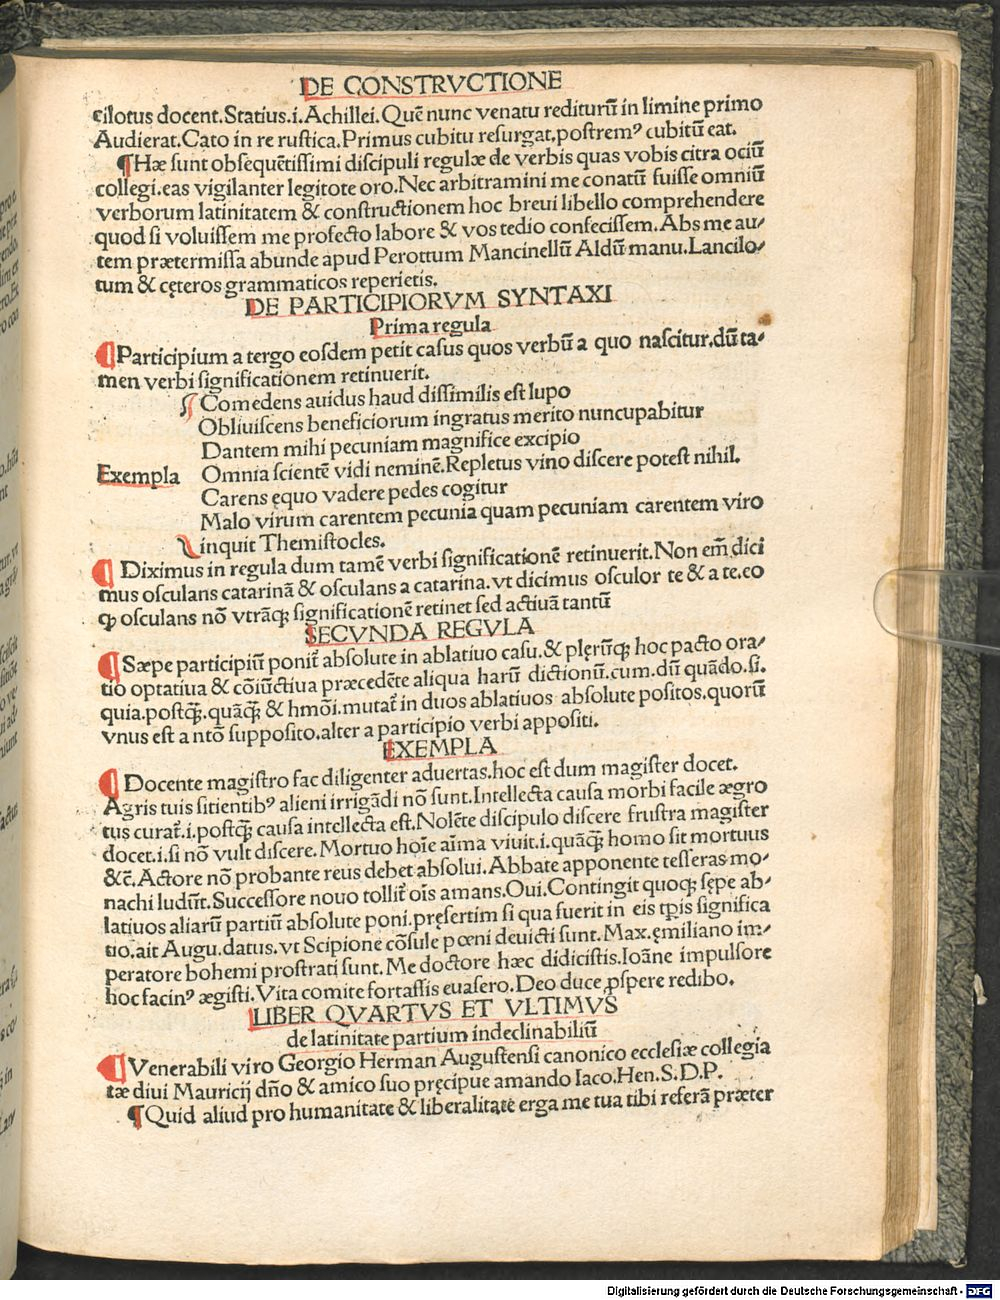 DE CONSTRVCTIONE
cilotus docent.Statius.i.Achillei.Quē nunc venatu rediturū in limine primo
Audierat.Cato in re rustica.Primus cubitu resurgat,postremꝰ cubitū eat.
¶Hæ sunt obsequētissimi discipuli regulæ de verbis quas vobis citra ociū
collegi.eas vigilanter legitote oro.Nec arbitramini me conatū fuisse omniū
verborum latinitatem & constructionem hoc breui libello comprehendere
quod si voluissem me profecto labore & vos tedio confecissem.Abs me au/
tem prætermissa abunde apud Perottum Mancinellū Aldū manu.Lancilo/
tum & cęteros grammaticos reperietis.
DE PARTICIPIORVM SYNTAXI
Prima regula
¶Participium a tergo eosdem petit casus quos verbū a quo nascitur.dū ta/
men verbi significationem retinuerit.
Comedens auidus haud dissimilis est lupo
Obliuiscens beneficiorum ingratus merito nuncupabitur
Dantem mihi pecuniam magnifice excipio
Exempla Omnia scientē vidi neminē.Repletus vino discere potest nihil.
Carens ęquo vadere pedes cogitur
Malo virum carentem pecunia quam pecuniam carentem viro
inquit Themistocles.
¶ Diximus in regula dum tamē verbi significationē retinuerit.Non em̄ dici
mus osculans catarinā & osculans a catarina.vt dicimus osculor te & a te.eo
ꝙ osculans nō vtrāꝗ; significationē retinet sed actiuā tantū
SECVNDA REGVLA
¶Sæpe participiū ponit̄ absolute in ablatiuo casu.& plęrūꝗ; hoc pacto ora/
tio optatiua & cōiūctiua præcedēte aliqua harū dictionū.cum.dū quādo.si.
quia.postꝗ̄;.quāꝗ̄; & hmōi.mutat̄ in duos ablatiuos absolute positos.quorū
vnus est a ntō supposito.alter a participio verbi appositi.
EXEMPLA
¶ Docente magistro fac diligenter aduertas.hoc est dum magister docet.
Agris tuis sitientibꝰ alieni irrigādi nō sunt.Intellecta causa morbi facile ægro
tus curat̄.i.postꝗ̄; causa intellecta est.Nolēte discipulo discere frustra magister
docet.i.si nō vult discere.Mortuo hoīe aīma viuit.i.quāꝗ̄; homo sit mortuus
&c̄.Actore nō probante reus debet absolui.Abbate apponente tesseras mo/
nachi ludūt.Successore nouo tollit̄ oīs amans.Oui.Contingit quoꝗ; sępe ab/
latiuos aliarū partiū absolute poni.pręsertim si qua fuerit in eis tp̄is significa
tio.ait Augu.datus.vt Scipione cōsule pœni deuicti sunt.Max.ęmiliano im/
peratore bohemi prostrati sunt.Me doctore hæc didicistis.Ioāne impulsore
hoc facinꝰ ægisti.Vita comite fortassis euasero.Deo duce ꝓspere redibo.
LIBER QVARTVS ET VLTIMVS
de latinitate partium indeclinabiliū
¶Venerabili viro Georgio Herman Augustensi canonico ecclesiæ collegia
tæ diui Mauricij dn̄o & amico suo pręcipue amando Iaco.Hen.S.D.P.
¶Quid aliud pro humanitate & liberalitate erga me tua tibi referā præter
Digitalisierung gefördert durch die Deutsche Forschungsgemeinschaft - DFG